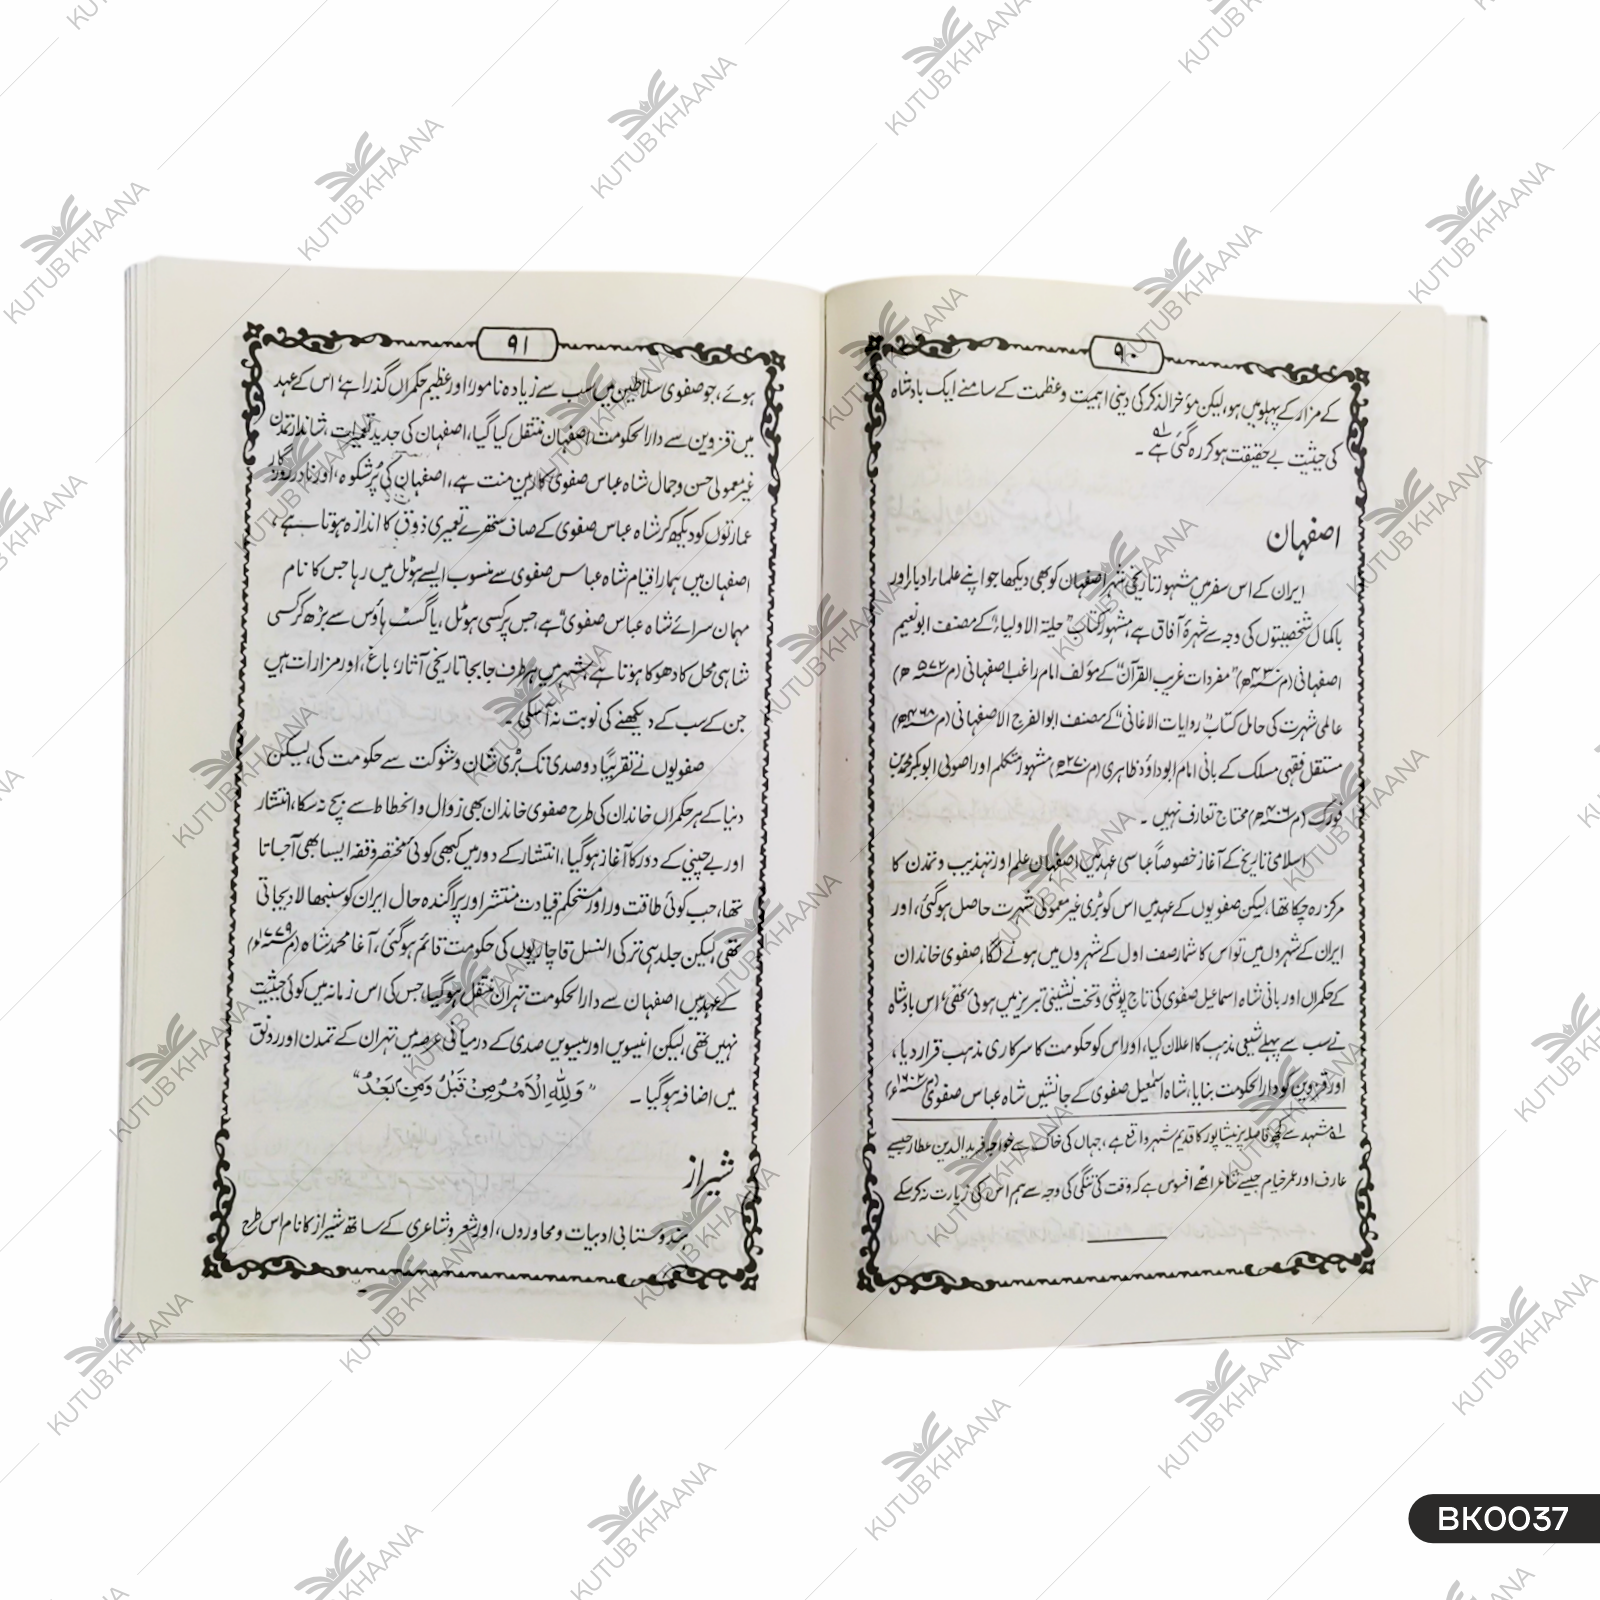 ۹۰
کے مزار کے پہلو میں ہو، لیکن مؤخر الذکر کی دینی اہمیت و عظمت کے سامنے ایک بادشاہ
کی حیثیت بے حقیقت ہو کر رہ گئی ہے ۔
اصفہان
ایران کے اس سفر میں مشہور تاریخی شہر اصفہان کو بھی دیکھا جو اپنے علماء ادباء اور
باکمال شخصیتوں کی وجہ سے شہرۂ آفاق ہے، مشہور کتاب "حلیۃ الاولیاء" کے مصنف ابو نعیم
اصفہانی (م ۴۳۰ھ) "مفردات غریب القرآن" کے مؤلف امام راغب اصفہانی (م ۵۷۲ھ)
عالمی شہرت کی حامل کتاب "روایات الاغانی" کے مصنف ابو الفرج الاصفہانی (م ۴۶۸ھ)
مستقل فقہی مسلک کے بانی امام ابو داؤد ظاہری (م ۲۷۰ھ) مشہور متکلم اور اصولی ابوبکر محمد بن
فورک (م ۴۰۶ھ) محتاج تعارف نہیں ۔
اسلامی تاریخ کے آغاز خصوصاً عباسی عہد میں اصفہان علم اور تہذیب و تمدن کا
مرکز رہ چکا تھا، لیکن صفویوں کے عہد میں اس کو بڑی غیر معمولی شہرت حاصل ہو گئی، اور
ایران کے شہروں میں تو اس کا شمار صف اول کے شہروں میں ہونے لگا، صفوی خاندان
کے حکمراں اور بانی شاہ اسماعیل صفوی کی تاج پوشی و تخت نشینی تبریز میں ہوئی تھی، اس بادشاہ
نے سب سے پہلے شیعی مذہب کا اعلان کیا، اور اس کو حکومت کا سرکاری مذہب قرار دیا،
اور قزوین کو دارالحکومت بنایا، شاہ اسمٰعیل صفوی کے جانشیں شاہ عباس صفوی (م ۱۶۰۲ء)
لہ مشہد سے کچھ فاصلہ پر نیشاپور کا قدیم شہر واقع ہے، جہاں کی خاک سے خواجہ فرید الدین عطار جیسے
عارف اور عمر خیام جیسے شاعر اٹھے افسوس ہے کہ وقت کی تنگی کی وجہ سے ہم اس کی زیارت نہ کر سکے
۹۱
ہوئے، جو صفوی سلاطین میں سب سے زیادہ نامور، اور عظیم حکمراں گذرا ہے، اس کے عہد
میں قزوین سے دارالحکومت اصفہان منتقل کیا گیا، اصفہان کی جدید تعمیرات، شاندار تمدن
غیر معمولی حسن و جمال شاہ عباس صفوی کا رہین منت ہے، اصفہان کی پُر شکوہ، اور نادر روزگار
عمارتوں کو دیکھ کر شاہ عباس صفوی کے صاف ستھرے تعمیری ذوق کا اندازہ ہوتا ہے،
اصفہان میں ہمارا قیام شاہ عباس صفوی سے منسوب ایسے ہوٹل میں رہا جس کا نام
مہمان سرائے شاہ عباس صفوی" ہے، جس پر کسی ہوٹل، یا گسٹ ہاؤس سے بڑھ کر کسی
شاہی محل کا دھوکا ہوتا ہے، شہر میں ہر طرف جا بجا تاریخی آثار، باغ، اور مزارات ہیں
جن کے سب کے دیکھنے کی نوبت نہ آسکی ۔
صفویوں نے تقریباً دو صدی تک بڑی شان و شوکت سے حکومت کی، لیکن
دنیا کے ہر حکمراں خاندان کی طرح صفوی خاندان بھی زوال و انحطاط سے بچ نہ سکا، انتشار
اور بے چینی کے دور کا آغاز ہو گیا، انتشار کے دور میں کبھی کوئی مختصر وقفہ ایسا بھی آجاتا
تھا، جب کوئی طاقت ور اور مستحکم قیادت منتشر اور پراگندہ حال ایران کو سنبھالا دیجاتی
تھی، لیکن جلد ہی ترکی النسل قاچاریوں کی حکومت قائم ہو گئی، آغا محمد شاہ (م ۱۷۷۹ء)
کے عہد میں اصفہان سے دارالحکومت تہران منتقل ہو گیا، جس کی اس زمانہ میں کوئی حیثیت
نہیں تھی، لیکن انیسویں اور بیسویں صدی کے درمیانی عرصہ میں تہران کے تمدن اور رونق
میں اضافہ ہو گیا ۔ "وَلِلّٰهِ الْاَمْرُ مِنْ قَبْلُ وَمِنْ بَعْدُ"
شیراز
ہندوستانی ادبیات و محاوروں، اور شعر و شاعری کے ساتھ شیراز کا نام اس طرح
BK0037